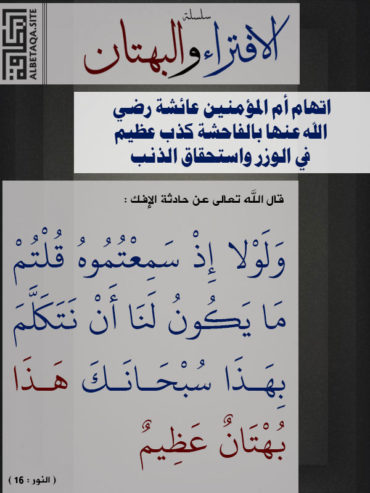 سلسلة
الافتراء والبهتان
البطاقة
ALBETAQA.SITE
اتهام أم المؤمنين عائشة رضي
الله عنها بالفاحشة كذب عظيم
في الوزر واستحقاق الذنب
قال الله تعالى عن حادثة الإفك :
وَلَوْلَا إِذْ سَمِعْتُمُوهُ قُلْتُمْ
مَا يَكُونُ لَنَا أَنْ نَتَكَلَّمَ
بِهَذَا سُبْحَانَكَ هَذَا
بُهْتَانٌ عَظِيمٌ
( النور : 16 )